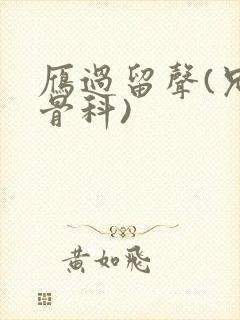 雁過留聲(兄
骨科)
黃如飛